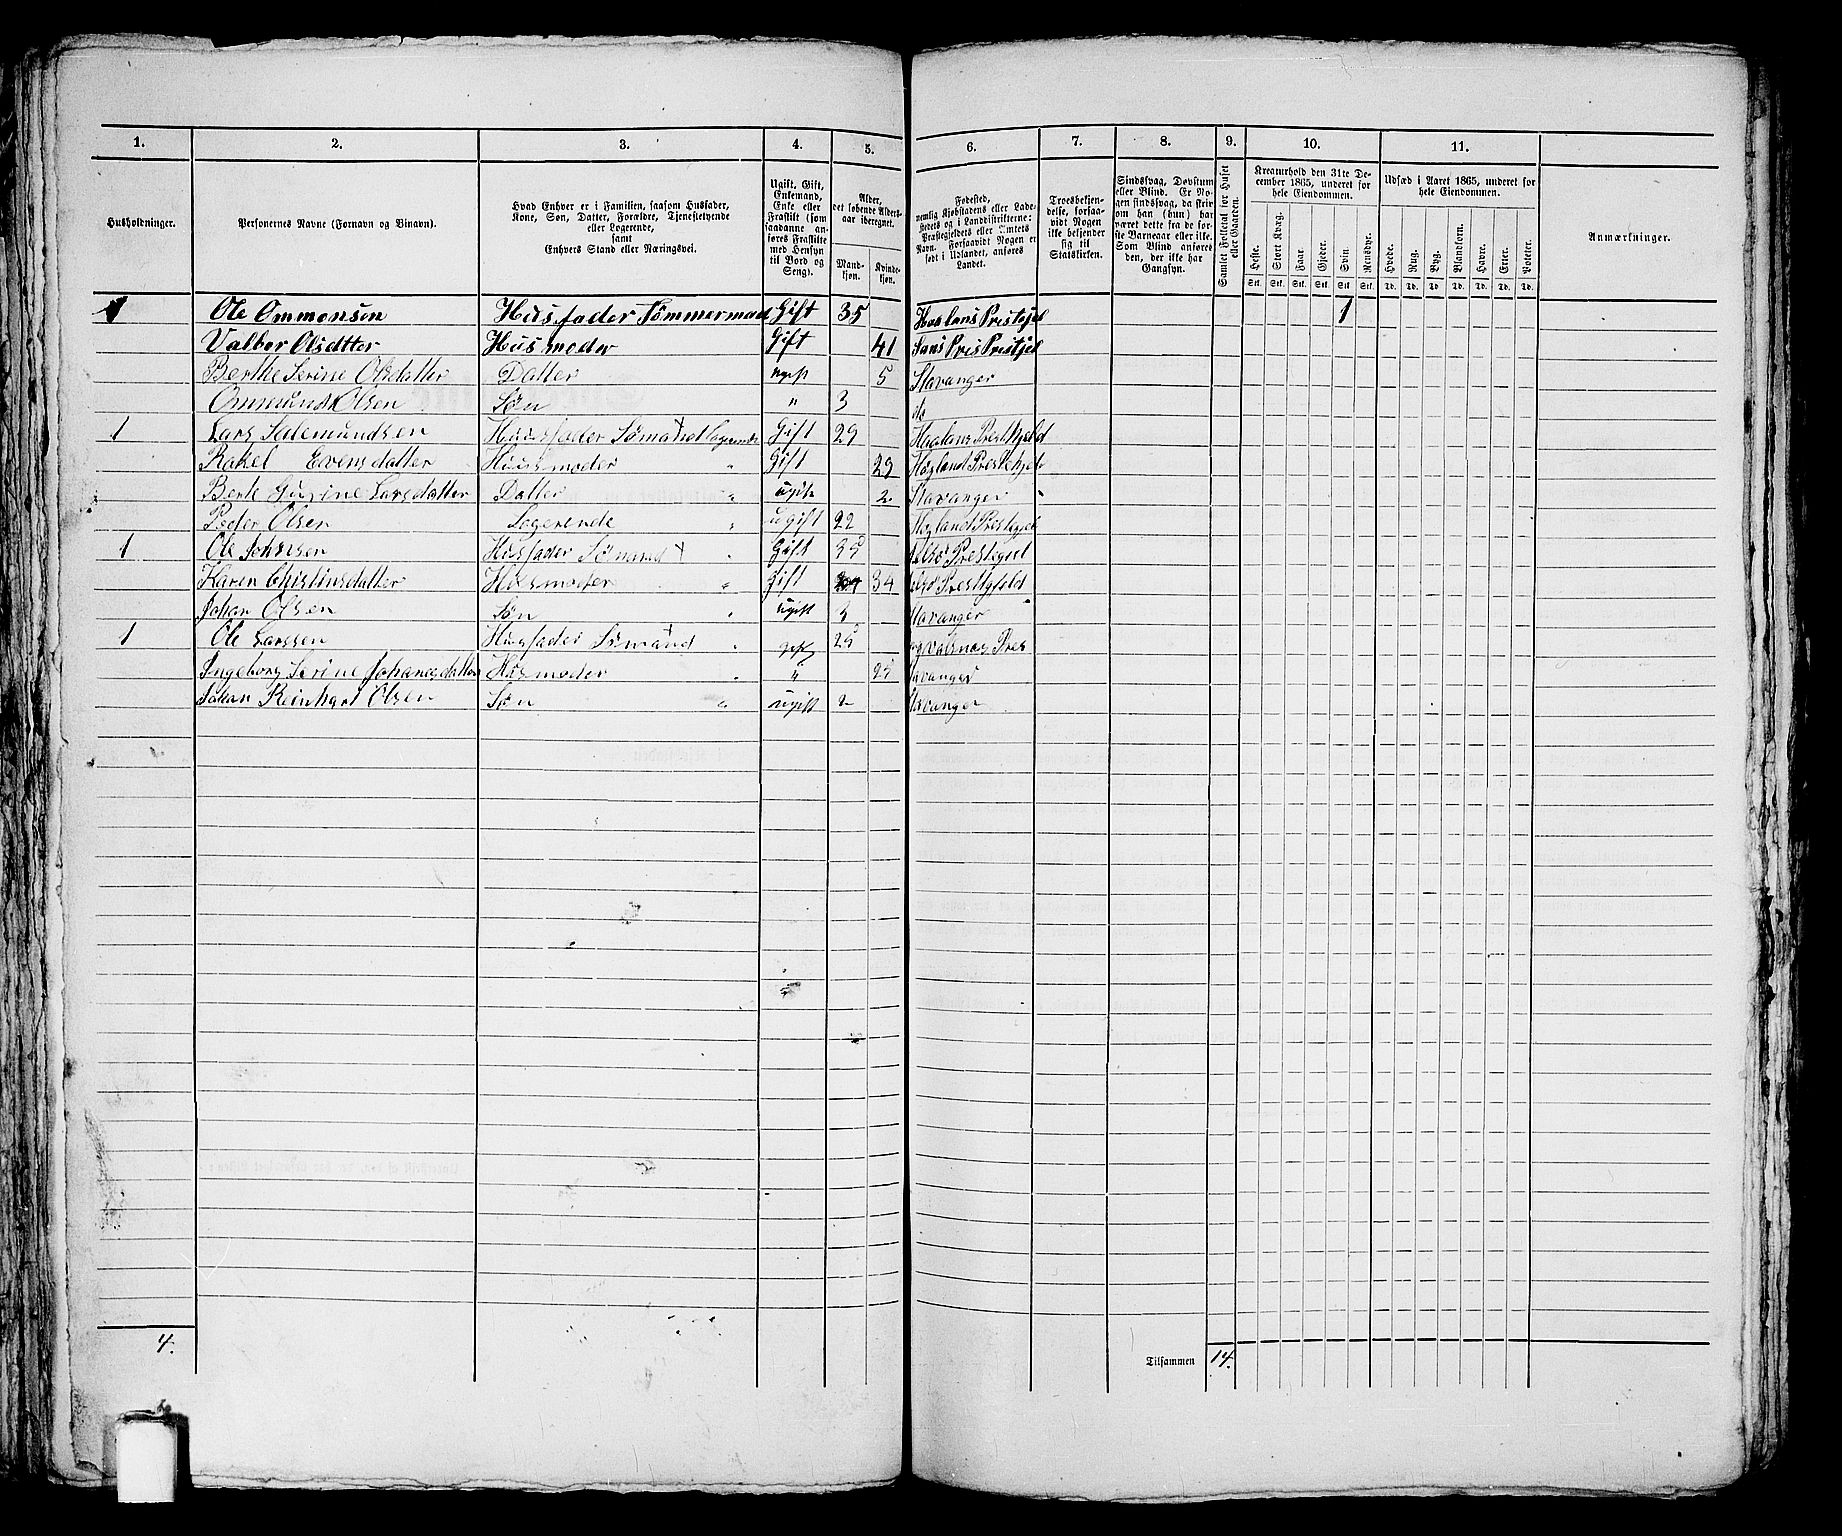 1. 2. 3. 4. 5. 6. 7. 8. 9. 10. 11.
Husholdninger.
Personernes Navne (Fornavn og Binavn).
Hvad Enhver er i Familien, saasom Husfader, Kone, Søn, Datter, Forældre, Tjenestetyende eller Logerende, samt Enhvers Stand eller Næringsvei.
Ugift, Gift, Enkemand, Enke eller Fraskilt (som saadanne anføres Fraskilte med Hensyn til Bord og Seng).
Alder, det løbende Aldersaar iberegnet.
Mandkjøn. Kvindekjøn.
Fødested, nemlig Kjøbstadens eller Ladestedets og i Landdistrikterne: Præstegjeldets eller Amtets Navn. Forsaavidt Nogen er født i Udlandet, anføres Landet.
Troesbekjendelse, forsaavidt Nogen ikke bekjender sig til Statskirken.
Sindssvag, Døvstum eller Blind. Er Nogen sindssvag, da skrives om han (hun) har været dette fra de første Barneaar eller ikke. Som Blind anføres den, der ikke har Gangsyn.
Samlet Folketal for Huset eller Gaarden.
Kreaturhold den 31te December 1865, underet for hele Eiendommen.
Heste. Stort Kvæg. Faar. Gjeder. Svin. Rensdyr.
Stk. Stk. Stk. Stk. Stk. Stk.
Udsæd i Aaret 1865, underet for hele Eiendommen.
Hvede. Rug. Byg. Blandkorn. Havre. Erter. Poteter.
Td. Td. Td. Td. Td. Td. Td.
Anmærkninger.
1 Ole Ommonsen Husfader Tømmermad Gift 35 Haalans Prestejel 1
Valbor Olsdtter Husmoder Gift 41
Berthe Serine Olsdatter Datter ugift 5 Stavanger
Ommund Olsen Søn " 3 do
1 Lars Salemundsen Husfader Sømand Logerende Gift 29 Haalans Prestkjeld
Rakel Evensdatter Husmoder " Gift 29 Højland Prestekjel
Berte Gurine Larsdatter Datter " ugift 2 Stavanger
Peder Olsen Logerende " ugift 22 Højland Prestegjel
1 Ole Johnsen Husfader Sømand " Gift 35
Karen Christinsdatter Husmoder " Gift 34
Johan Olsen Søn " ugift 3 Stavanger
1 Ole Larssen Husfader Sømand " gift 25
Ingeborg Serine Johanesdatter Husmoder " " 25 Stavanger
Johan Reinhart Olsen Søn " ugift 2 Stavanger
4. Tilsammen 14.